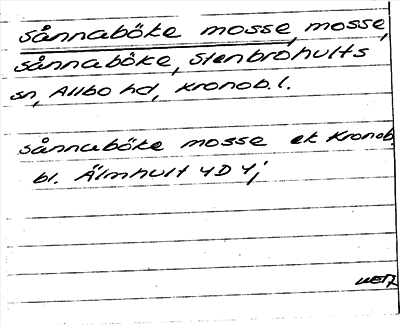 Sånnaböke mosse, mosse,
Sånnaböke, Stenbrohults
sn, Allbo hd, Kronob. l.
Sånnaböke mosse ek Kronob.
bl. Älmhult 4D 4j